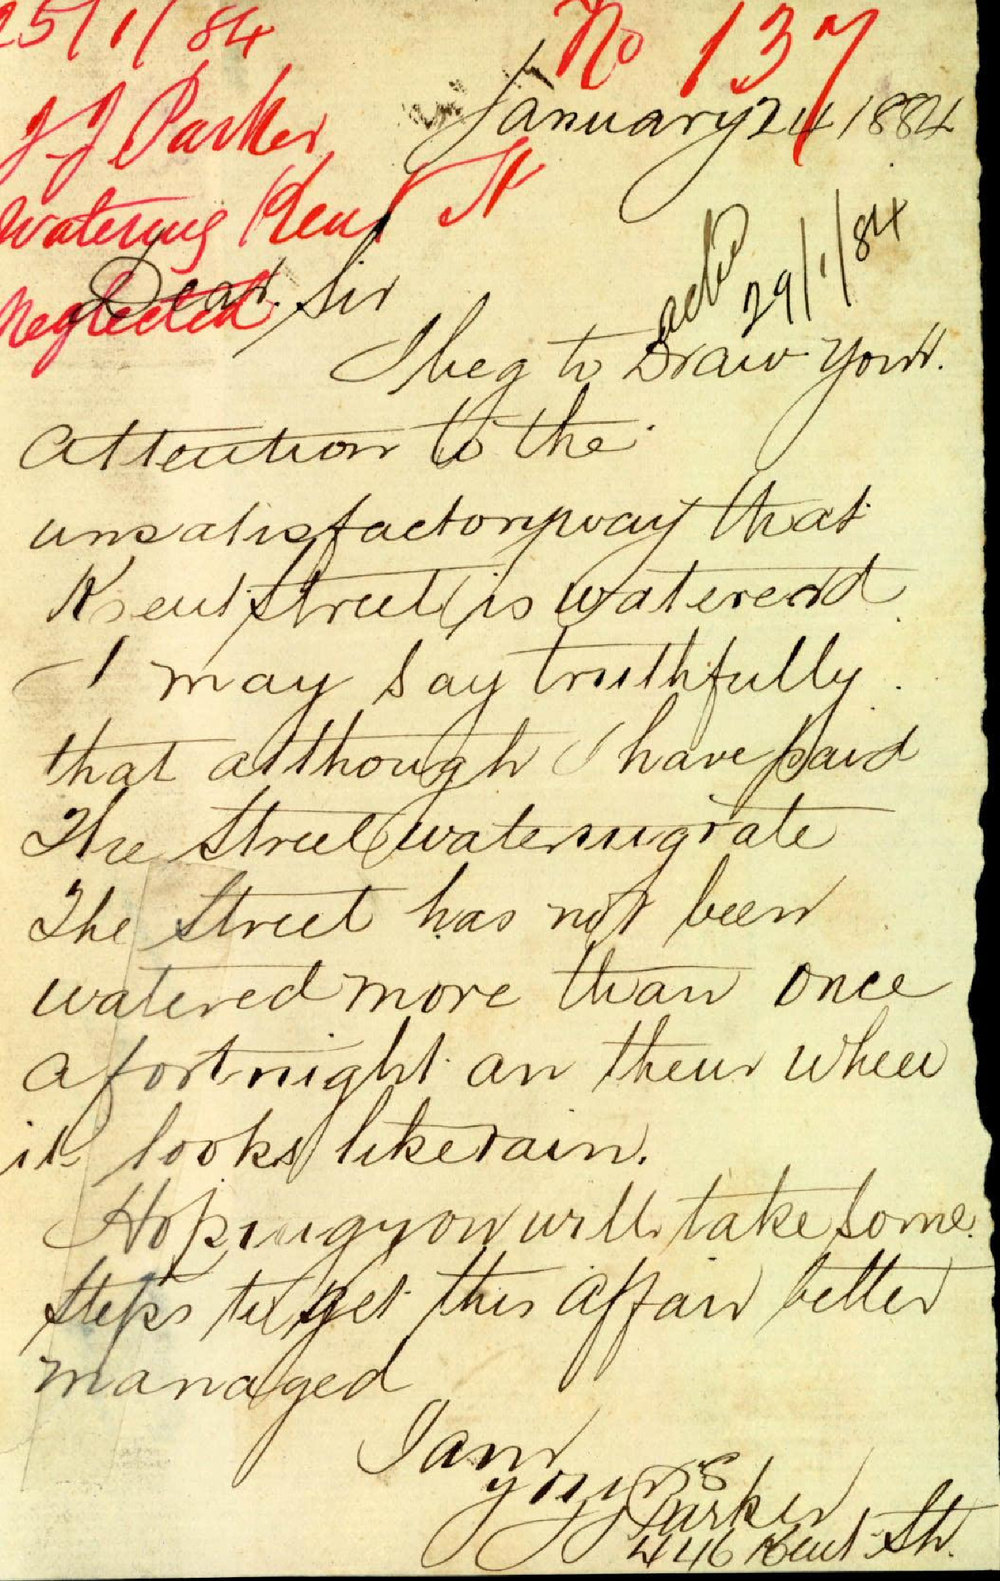 25/1/84
No 137
J J Parker
January 24 1884
Watering Kent St
Neglected
Dear Sir
ackd
29/1/84
I beg to Draw your
attention to the
unsatisfactory way that
Kent Street is watererd
I may say truthfully
that allthough I have paid
The Street watering rate
The Street has not been
watered more than once
a fortnight an then when
it looks like rain.
Hoping you will take some
steps to get this affair better
managed
I am
yours
J J Parker
446 Kent St.